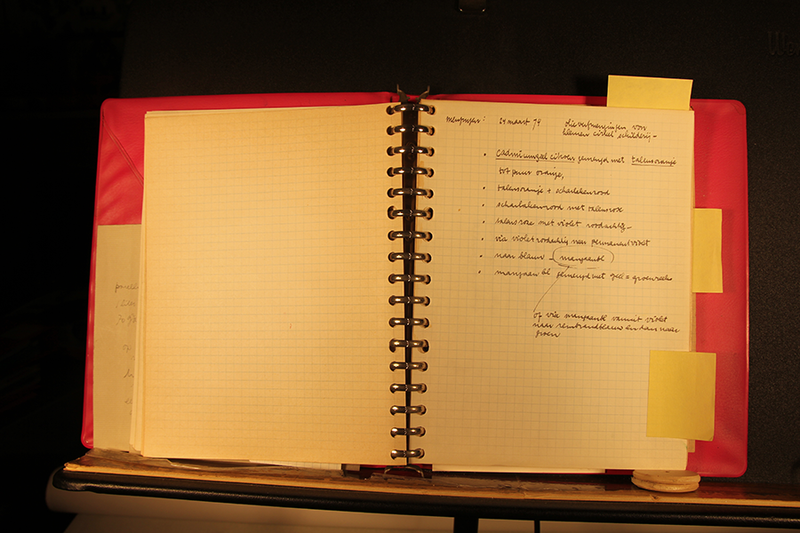 mengingen: 24 maart 74
olieverfmengingen voor
kleuren cirkel schilderij
• cadmiumgeel citroen, gemengd met talensoranje
tot puur oranje,
• talensoranje + scharlakenrood
• scharlakenrood met talensrose
• talens rose met violet roodachtig
• via violet roodachtig naar permanent violet
• naar blauw - mangaanbl
• mangaan bl gemengd met geel = groenreeks
of via mangaanbl vanuit violet
naar rembrandtblauw en dan naar
groen